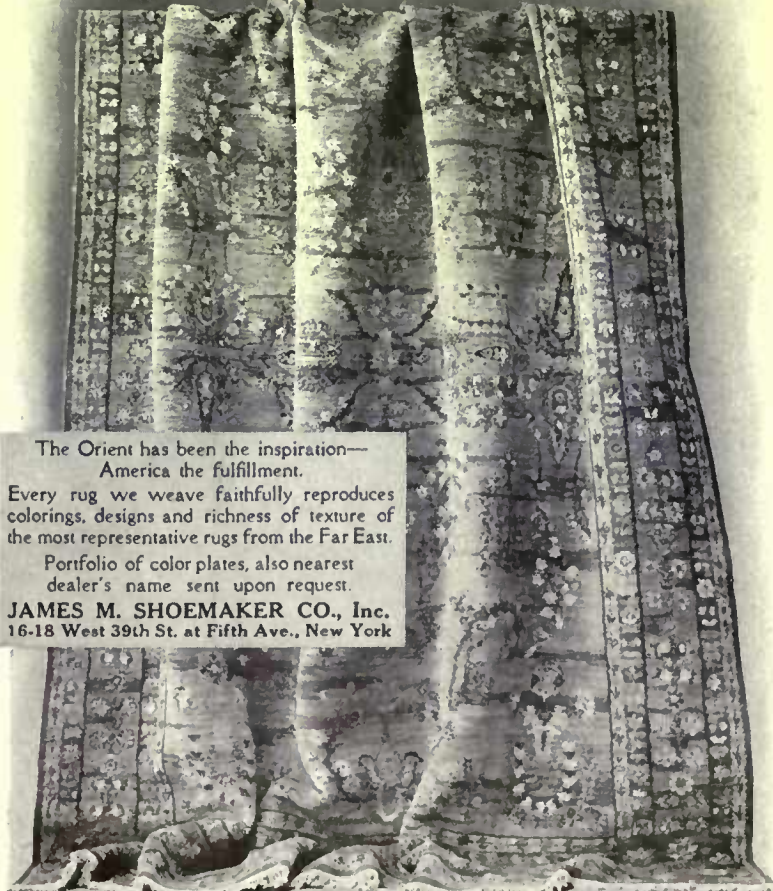 The Orient has been the inspiration—
America the fulfillment.
Every rug we weave faithfully reproduces
colorings, designs and richness of texture of
the most representative rugs from the Far East.
Portfolio of color plates, also nearest
dealer's name sent upon request.
JAMES M. SHOEMAKER CO., Inc.
16-18 West 39th St. at Fifth Ave., New York